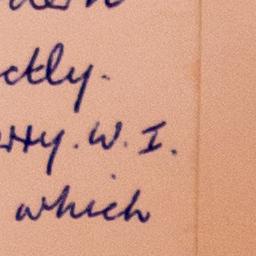 ctly.
rry. W. I.
which